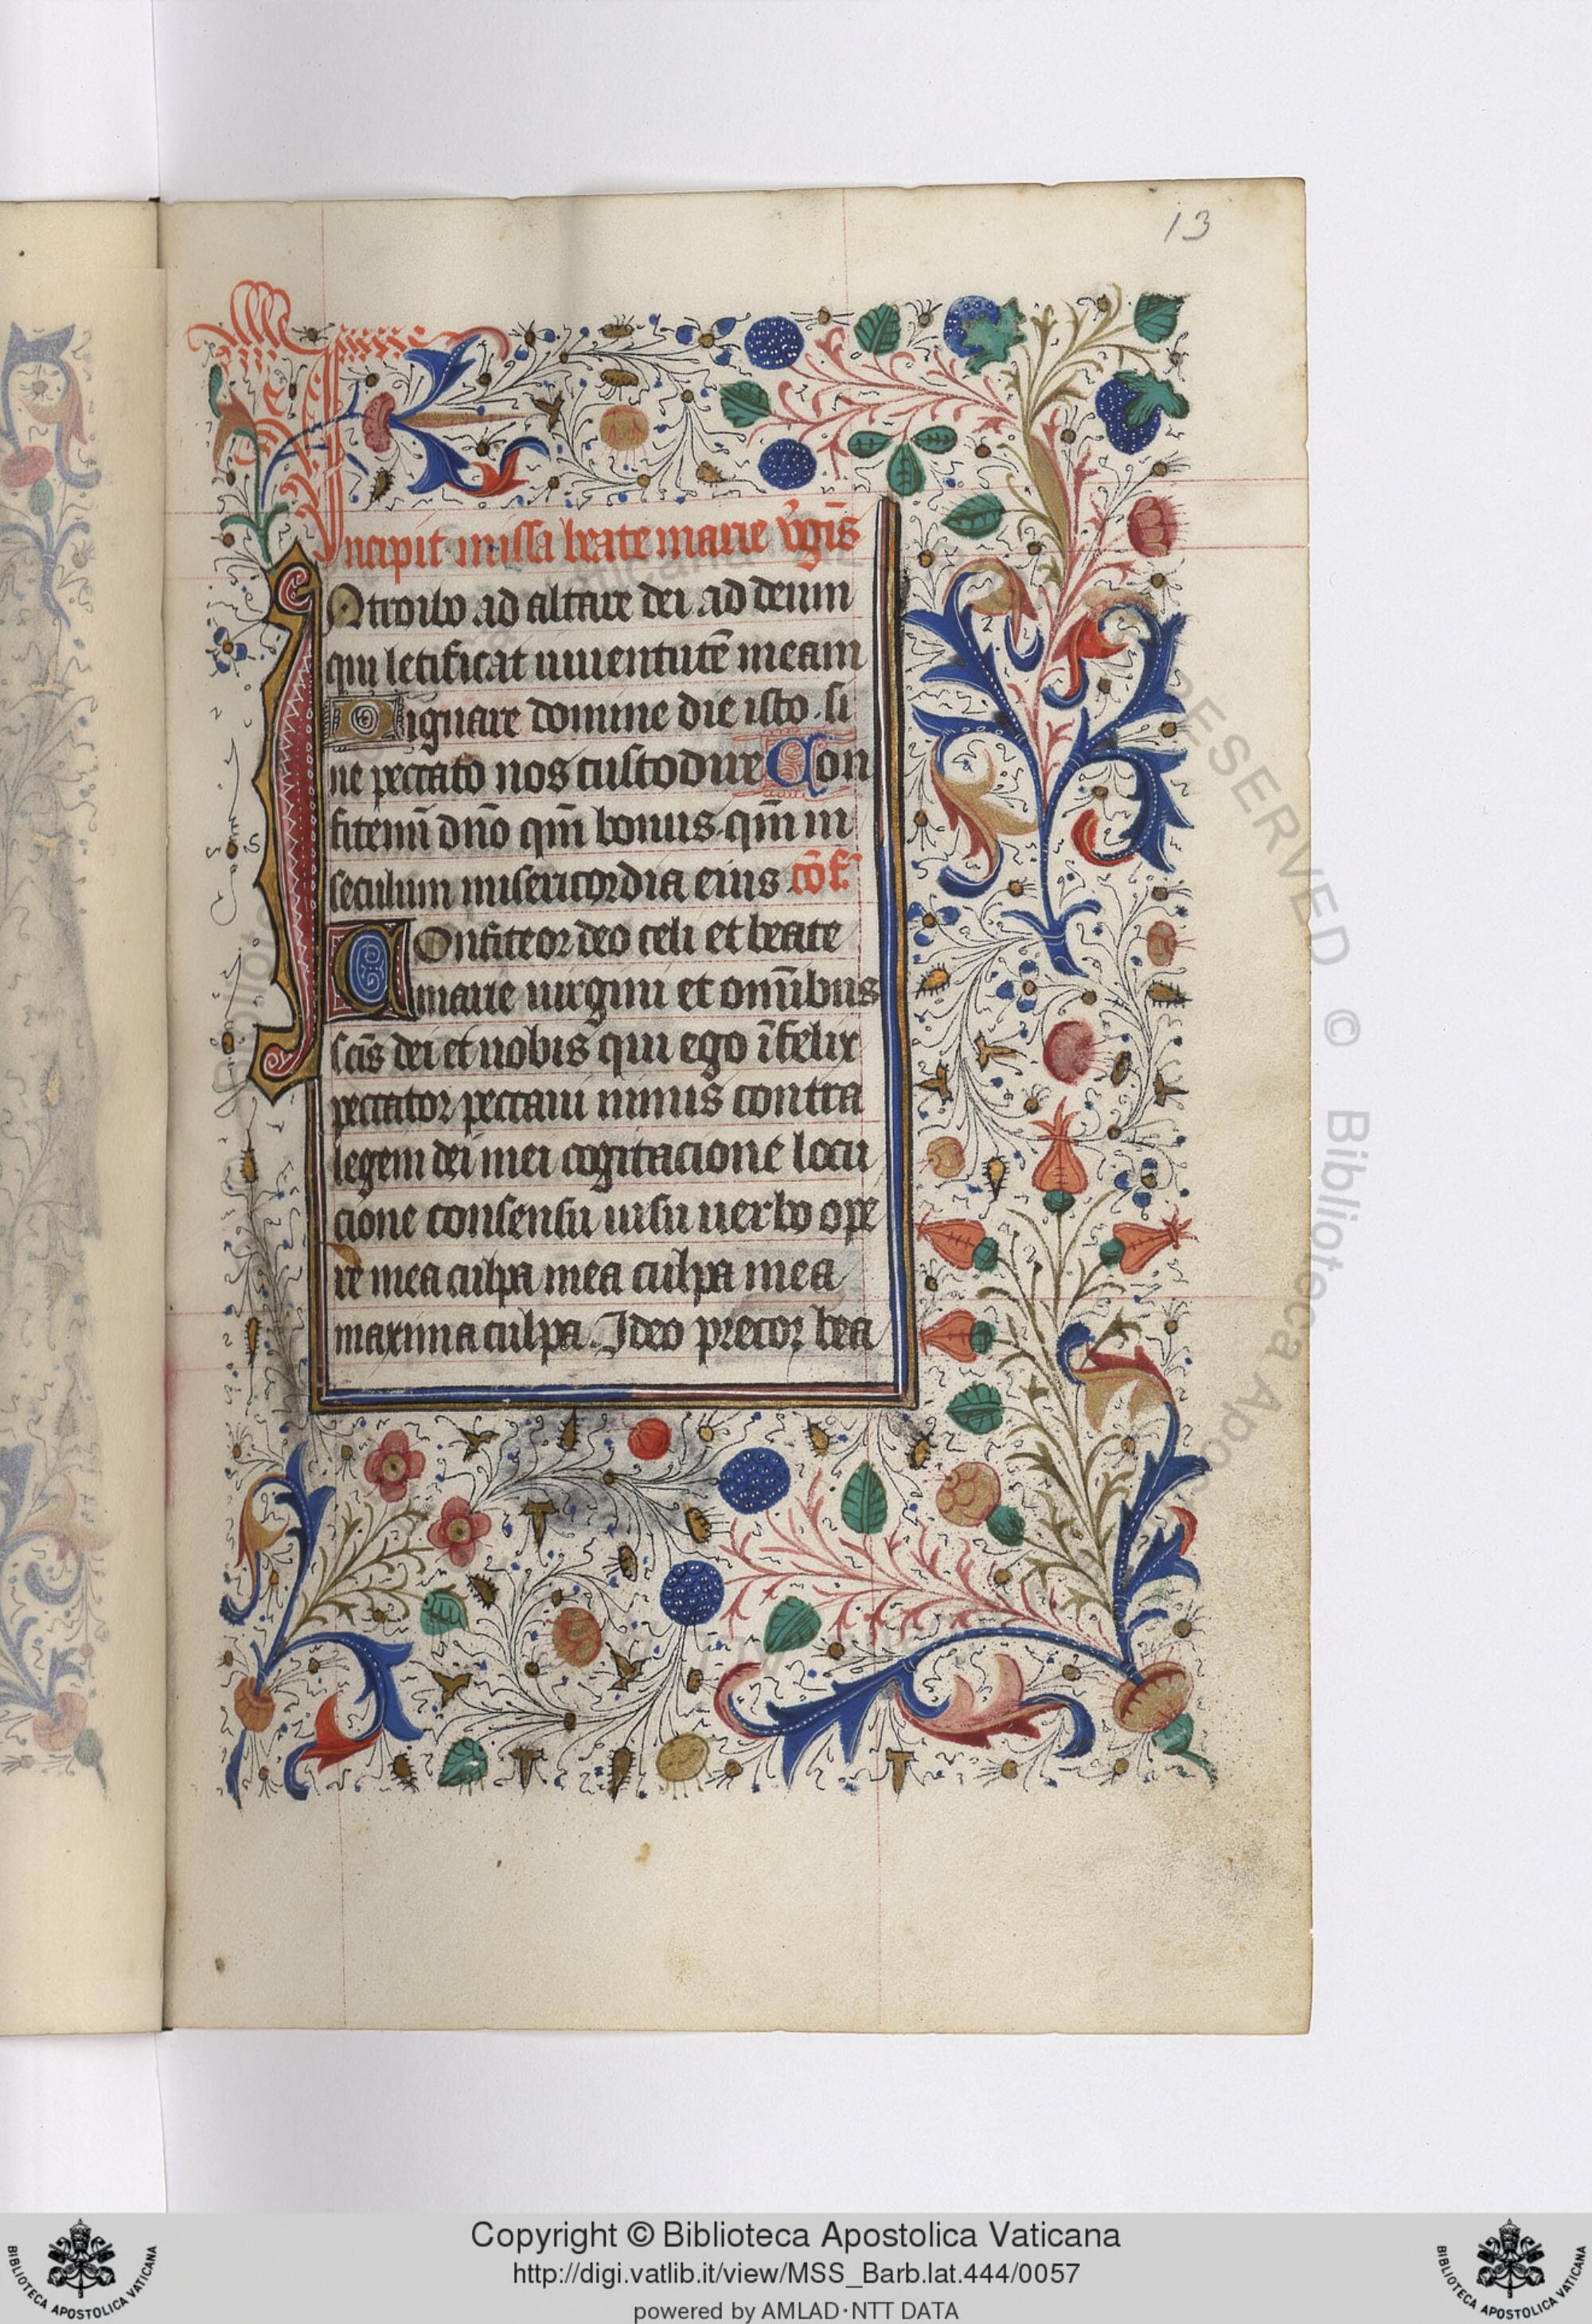 13
Incipit missa beate marie v̾gīs
INtroibo ad altare dei ad deum
qui letificat iuuentutē meam
Dignare domine die isto. si
ne peccato nos custodire Con
fitemī dn̄o qm̄ bonus. qm̄ in
seculum misericordia eius cōf.
COnfiteor deo celi et beate
marie uirgini et omībus
scīs dei et uobis qui ego īfelix
peccator peccaui nimis contra
legem dei mei cogitacione locu
cione consensu uisu uerbo ope
re mea culpa mea culpa mea
maxima culpa. Ideo precor bea
RESERVED © Biblioteca Apos
Copyright © Biblioteca Apostolica Vaticana
http://digi.vatlib.it/view/MSS_Barb.lat.444/0057
powered by AMLAD·NTT DATA
BIBLIOTECA APOSTOLICA VATICANA
BIBLIOTECA APOSTOLICA VATICANA